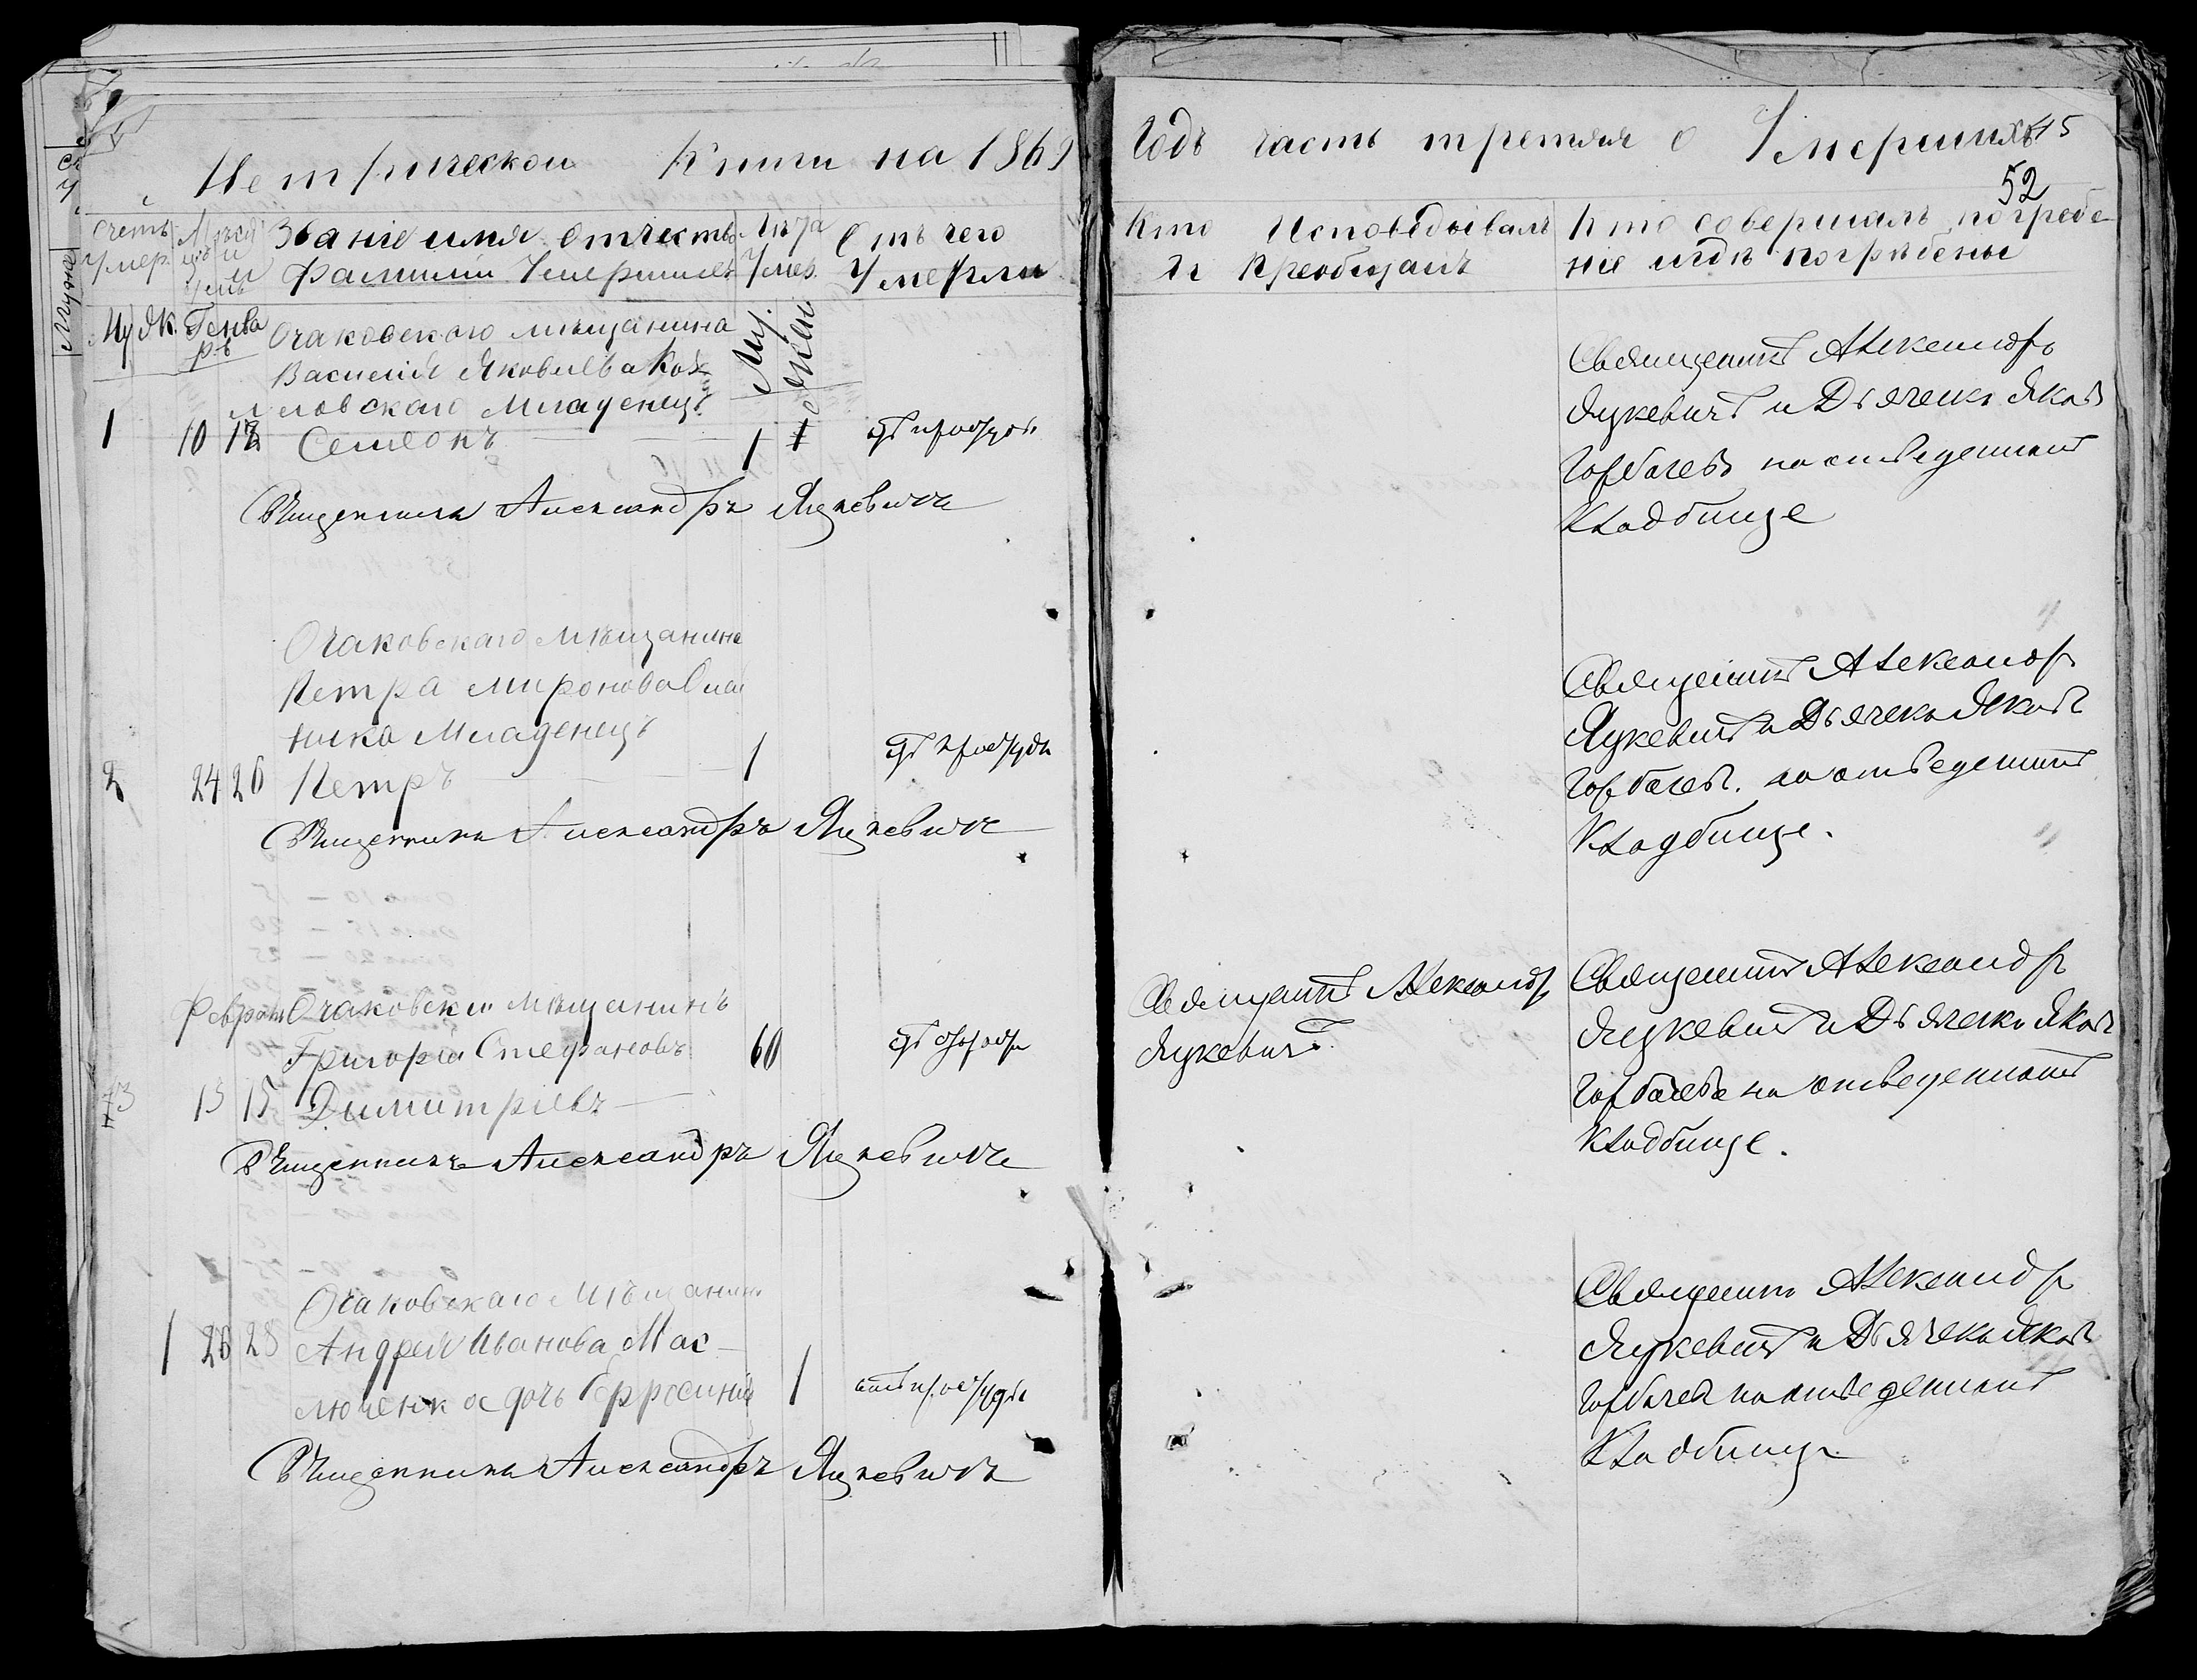 Метрической Книги на 1869
Счетъ Умер. Мѣсяцъ и Званіе имя отчество Лѣта Отъ чего
Фамилія Умершихъ Умер. Умерли
Му Жк. Генва Очаковского мѣщанина Му.
ръ Василія Яковлева Жен
ловского Младенецъ
1 10 12 Семеонъ 1 отъ простуды
Священникъ Александръ Яцкевичъ
Очаковскаго Мѣщанина
Петра Миронова
Младенецъ
2 24 26 Петръ 1 отъ простуды
Священникъ Александръ Яцкевичъ
Февраль Очаковски Мѣщанинъ
Григорій Стефановъ 60
3 13 15 Димитріевъ
Священникъ Александръ Яцкевичъ
Очаковскаго Мѣщанина
1 26 28 Андрея Иванова Мас-
люченко дочь 1 отъ простуды
Священникъ Александръ Яцкевичъ
Годъ часть третяя о Умершихъ 15
52
Кто Исповѣдывалъ Кто совершалъ погребе
И Преобщалъ ніе игдѣ погрѣбены
Священникъ Александръ
Яцкевичъ и Дьячекъ Яковъ
Горбачевъ на отведенномъ
Кладбище
Священникъ Александръ
Яцкевичъ и Дьячекъ Яковъ
Горбачевъ. на отведенномъ
Кладбище.
Священникъ Александръ
Яцкевичъ.
Священникъ Александръ
Яцкевичъ и Дьячекъ Яковъ
Горбачевъ на отведенномъ
Кладбище.
Священникъ Александръ
Яцкевичъ и Дьячекъ Яковъ
Горбачевъ на отведенномъ
Кладбище